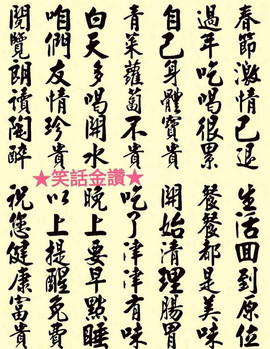 春節激情已退 生活回到原位
過年吃喝很累 餐餐都是美味
自己身體寶貴 開始清理腸胃
青菜蘿蔔不貴 吃了津津有味
白天多喝開水 晚上要早點睡
咱們友情珍貴 以上提醒免費
閱覽朗讀陶醉 祝您健康富貴
★笑話金讚★